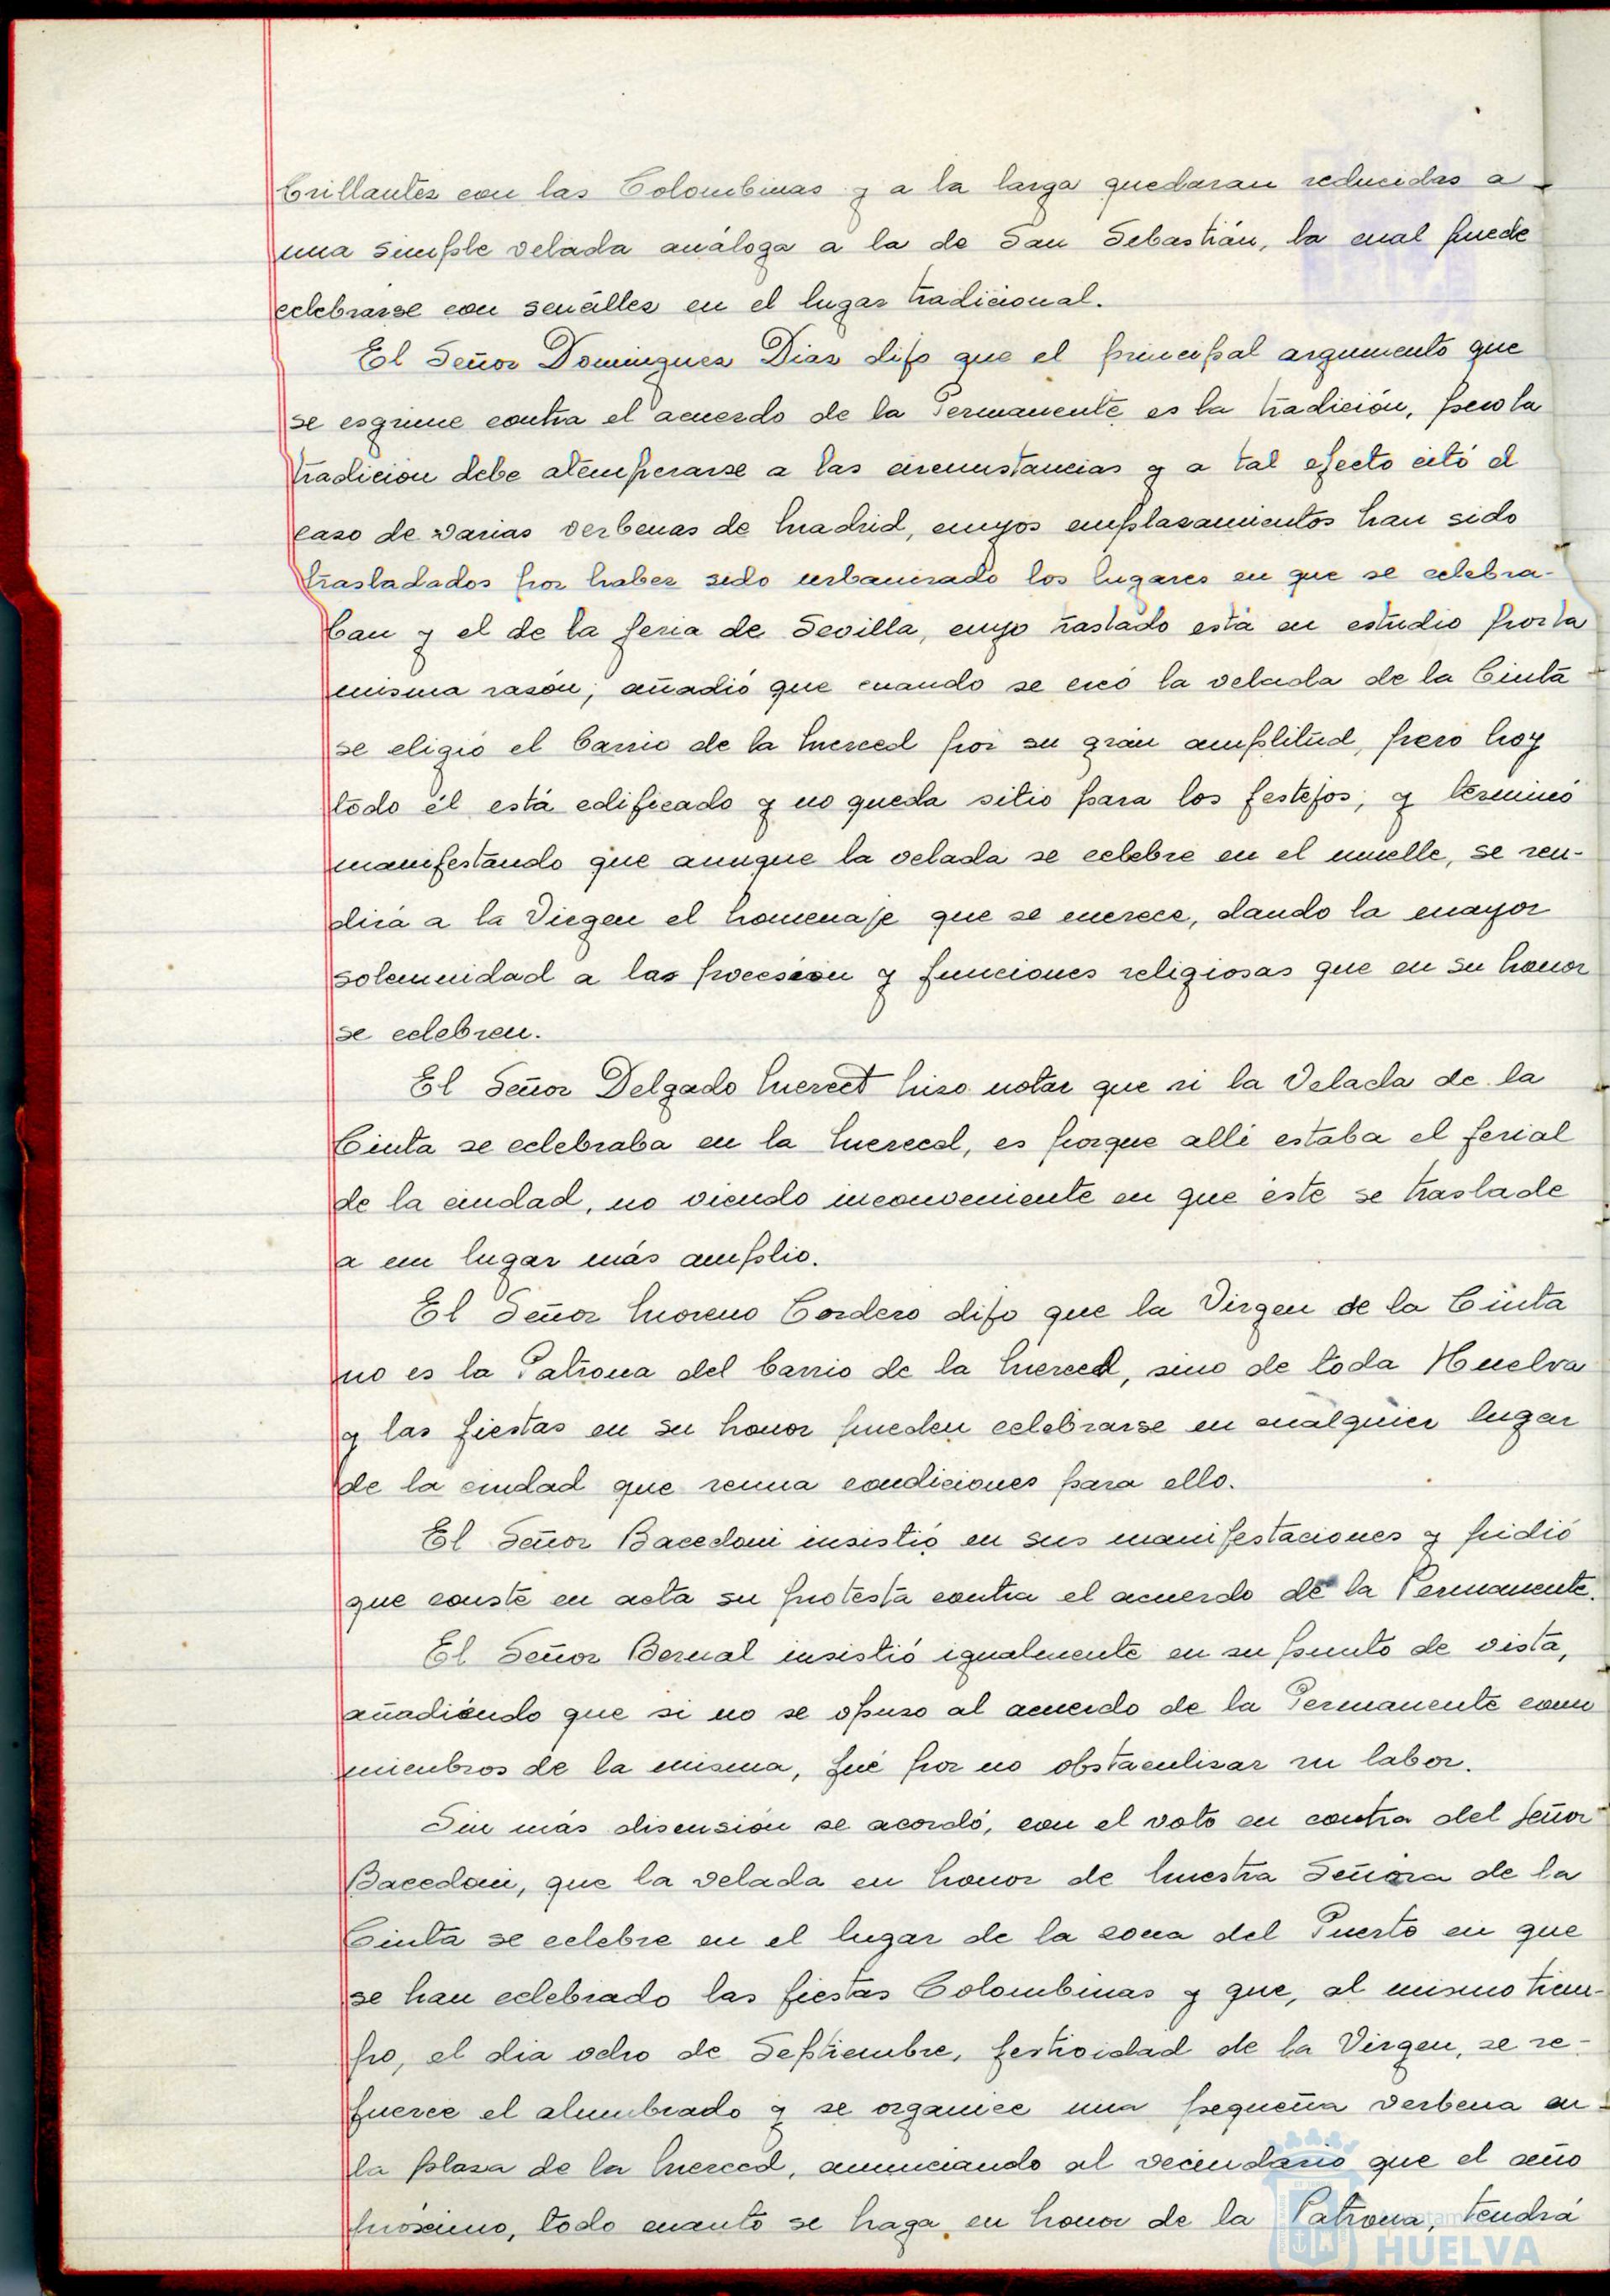 brillantes con las Colombinas y a la larga quedaran reducidas a
una simple velada análoga a la de San Sebastián, la cual puede
celebrarse con sencillez en el lugar tradicional.
El Señor Dominguez Diaz dijo que el principal argumento que
se esgrime contra el acuerdo de la Permanente es la tradición, pero la
tradición debe atemperarse a las circunstancias y a tal efecto citó el
caso de varias verbenas de Madrid, cuyos emplazamientos han sido
trasladados por haber sido urbanizado los lugares en que se celebra-
ban y el de la feria de Sevilla, cuyo traslado está en estudio por la
misma razón; añadió que cuando se creó la velada de la Cinta
se eligió el barrio de la Merced por su gran amplitud, pero hoy
todo él está edificado y no queda sitio para los festejos; y terminó
manifestando que aunque la velada se celebre en el muelle, se ren-
dirá a la Virgen el homenaje que se merece, dando la mayor
solemnidad a las procesión y funciones religiosas que en su honor
se celebren.
El Señor Delgado Merect hizo notar que si la Velada de la
Cinta se celebraba en la Merced, es porque allí estaba el ferial
de la ciudad, no viendo inconveniente en que éste se traslade
a un lugar más amplio.
El Señor Moreno Cordero dijo que la Virgen de la Cinta
no es la Patrona del barrio de la Merced, sino de toda Huelva
y las fiestas en su honor pueden celebrarse en cualquier lugar
de la ciudad que reuna condiciones para ello.
El Señor Bacedoni insistió en sus manifestaciones y pidió
que conste en acta su protesta contra el acuerdo de la Permanente.
El Señor Bernal insistió igualmente en su punto de vista,
añadiéndo que si no se opuso al acuerdo de la Permanente como
miembros de la misma, fué por no obstaculizar su labor.
Sin más discusión se acordó, con el voto en contra del Señor
Bacedoni, que la velada en honor de Nuestra Señora de la
Cinta se celebre en el lugar de la zona del Puerto en que
se han celebrado las fiestas Colombinas y que, al mismo tiem-
po, el dia ocho de Septiembre, festividad de la Virgen, se re-
fuerce el alumbrado y se organice una pequeña verbena en
la plaza de la Merced, anunciando al vecindario que el año
próximo, todo cuanto se haga en honor de la Patrona, tendrá
HUELVA